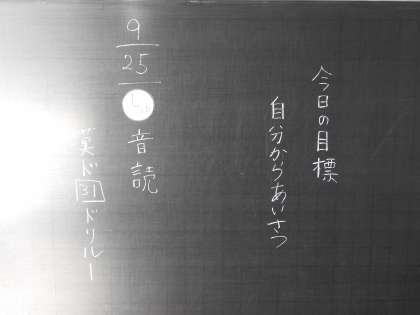 今日の目標
自分からあいさつ
9
25
音読
漢ド31ドリル